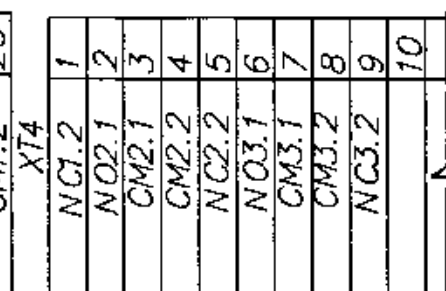 XT4
NC1.2 1
NO2.1 2
CM2.1 3
CM2.2 4
NC2.2 5
NO3.1 6
CM3.1 7
CM3.2 8
NC3.2 9
10